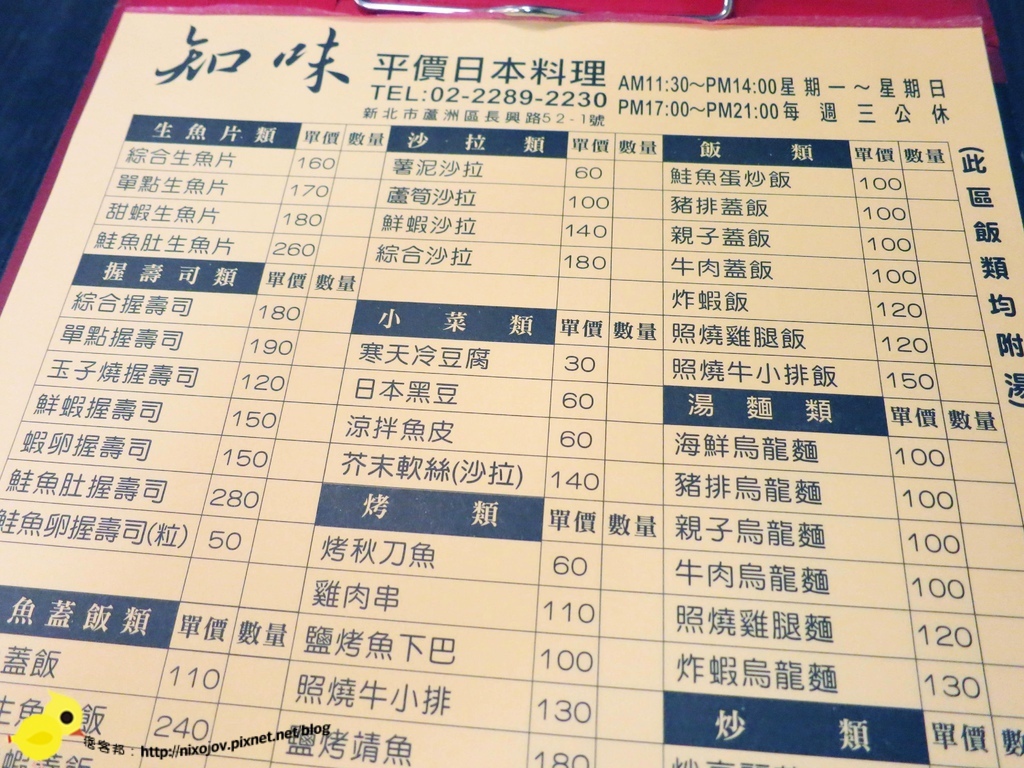 知味 平價日本料理
TEL:02-2289-2230
新北市蘆洲區長興路52-1號
AM11:30～PM14:00星期一～星期日
PM17:00～PM21:00每週三公休
生魚片類 單價 數量
綜合生魚片 160
單點生魚片 170
甜蝦生魚片 180
鮭魚肚生魚片 260
握壽司類 單價 數量
綜合握壽司 180
單點握壽司 190
玉子燒握壽司 120
鮮蝦握壽司 150
蝦卵握壽司 150
鮭魚肚握壽司 280
鮭魚卵握壽司(粒) 50
魚蓋飯類 單價 數量
蓋飯 110
生魚 飯 240
沙拉類 單價 數量
薯泥沙拉 60
蘆筍沙拉 100
鮮蝦沙拉 140
綜合沙拉 180
小菜類 單價 數量
寒天冷豆腐 30
日本黑豆 60
涼拌魚皮 60
芥末軟絲(沙拉) 140
烤類 單價 數量
烤秋刀魚 60
雞肉串 110
鹽烤魚下巴 100
照燒牛小排 130
鹽烤靖魚 180
飯類 單價 數量
鮭魚蛋炒飯 100
豬排蓋飯 100
親子蓋飯 100
牛肉蓋飯 100
炸蝦飯 120
照燒雞腿飯 120
照燒牛小排飯 150
湯麵類 單價 數量
海鮮烏龍麵 100
豬排烏龍麵 100
親子烏龍麵 100
牛肉烏龍麵 100
照燒雞腿烏龍麵 120
炸蝦烏龍麵 130
炒類 單價 數
(此區飯類均附湯)
痞客邦：http://nixojov.pixnet.net/blog